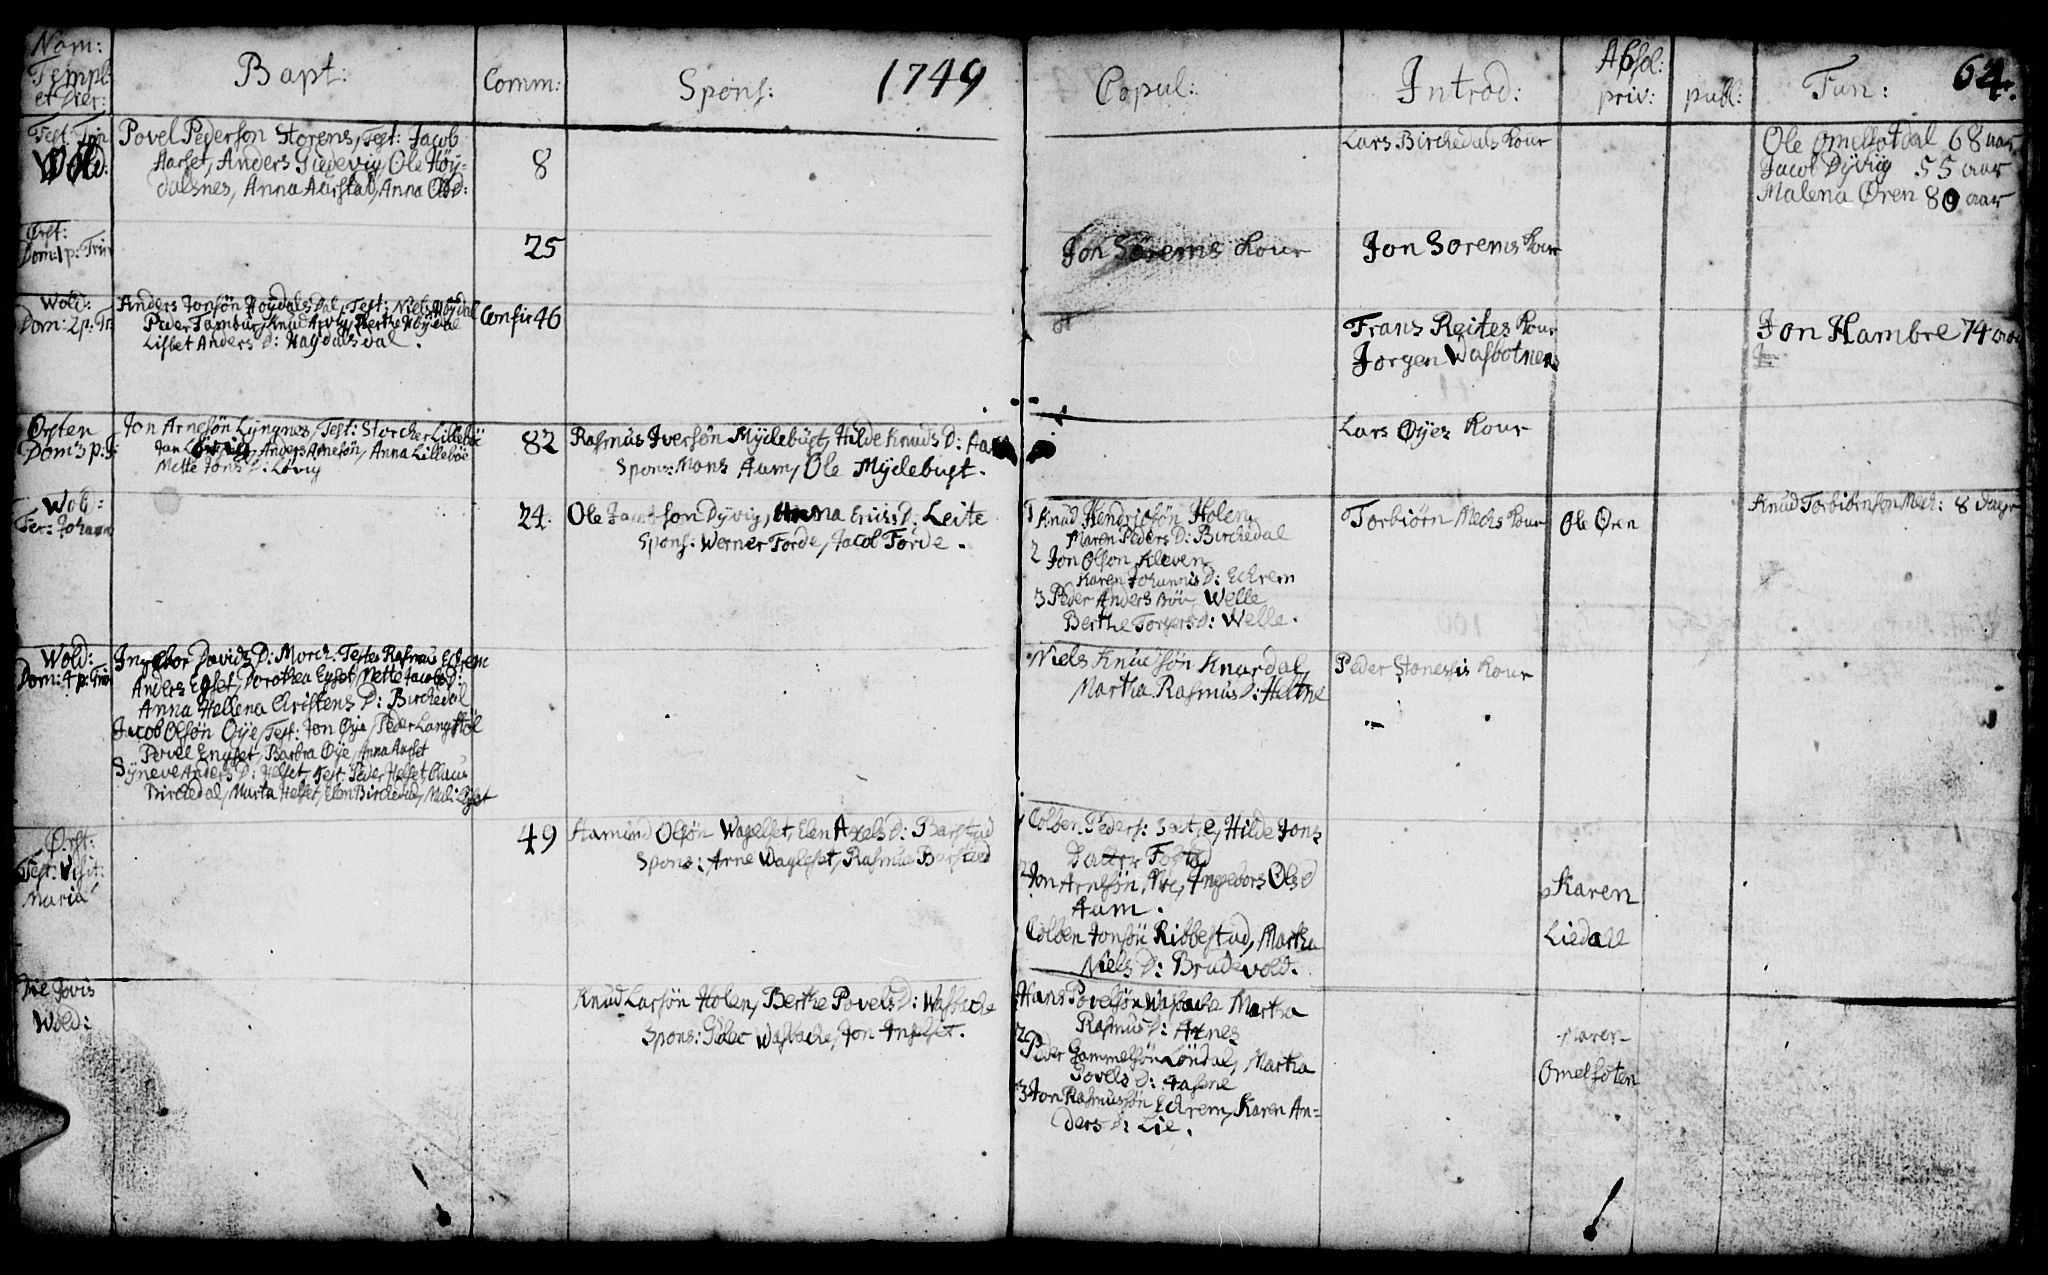 Nom:
Templ:
et Dier:
Bapt:
Comm:
Spons:
1749
Copul:
Introd:
Absol:
priv:
publ:
Fun:
64.
Fest: Trin
Wold:
Povel Pederson Storens, Test: Jacob
Aarset, Anders Giedevig, Ole Höy-
dalsnes, Anna Aarstad, Anna
8
Lars Birchedals Kour
Ole Omelfotdal 68 aar
Jacob Dyvig 55 aar
Malena Øren 80 aar
Ørst:
Dom: 1 p: Trin
25
Jon Sörems Kour
Jon Sorems Kour
Wold:
Dom: 2 p: Tr:
Anders Jonsön Höydalsdal, Test: Niels Höydal
Peder Tambur, Knud Arvig, Berthe Höydal
Lisbet Anders D: Haydalsdal.
Confir 46
Frans Reites Kour
Jorgen Wasbotnen
Jon Hambre 74 aar
Ørsten
Dom 3 p: Tr
Jon Arnesön Lyngnes, Test: Storcher Lilleböe
Jan Lövig, Anders Arnesön, Anna Lilleböe
Mette Jons D: Lövig
82
Rasmus Iversön Myclebust, Hilde Knuds D: Aam
Spons: Mons Aam, Ole Myclebust.
Lars Øyes Kour
Wold:
Fer: Johann
24.
Ole Jambson Dyvig, Anna Erics D: Leite
Spons: Werner Forde, Jacob Forde.
1 Knud Hendrichsön Holen,
Maren Peders D: Birchedal
2 Jon Olson Kleven
Karen Johannis D: Echrem
3 Peder Anders Böe, Welle
Berthe Torgers D: Welle.
Torbiörn Mechs Kour
Ole Øren
Knud Torbiörnson Mech: 8 dage
Wold:
Dom: 4 p: Trin
Ingebor Davids D: Morch. Testes Rasmus Echrem
Anders Egset, Dorothea Egset, Mette Jacobs D:
Anna Hellena Christens D: Birchedal
Jacob Olsön Øye, Test: Jon Øye, Peder Langstöl
Povel Engset, Barbra Øye, Anna Aarset
Syneve Anders D: Helset, Test: Peder Helset, Claus
Birchedal, Marta Helset, Elen Birchedal, Mali Egset
Niels Knudsön Knardal,
Martha Rasmus D: Heltne
Peder Stonesis Kour
Ørst:
Fest: Visit:
Mariä
49
Hamund Olsön Wagelset, Elen Axels D: Barstad
Spons: Arne Wagleset, Rasmus Barstad
Colben Peders: Sætre, Hilde Jons
Datter Follad
2 Jon Arnesön, Nre, Ingebors Ols D
Aam.
Colben Jonsön Ribbestad, Martha
Niels D: Brudevold.
Karen
Liedall
Die Jovis
Wold:
Knud Larsön Holen, Berthe Povels D: Wasbache
Spons: Gidec Wasbache, Jon Ingset.
Hans Povelsön Wasbache Martha
Rasmus D: Axnes
2 Peder Gammelsön Löndal, Martha
Povels D: Aasme
3 Jon Rasmussön Echrem, Karen An-
ders D: Lie.
Maren
Omelfoten